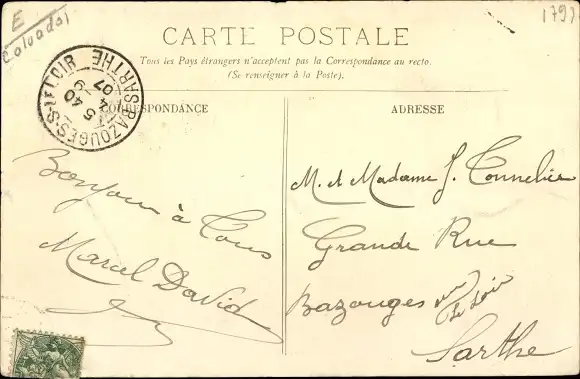 E
Calvados
1793
CARTE POSTALE
Tous les Pays étrangers n'acceptent pas la Correspondance au recto.
(Se renseigner à la Poste).
BAZOUGES-S-LE LOIR
SARTHE
5 40
9-4
07
CORRESPONDANCE
ADRESSE
Bonjour à Tous
Marcel David
M. et Madame J. Tonnelier
Grande Rue
Bazouges sur
le Loir
Sarthe